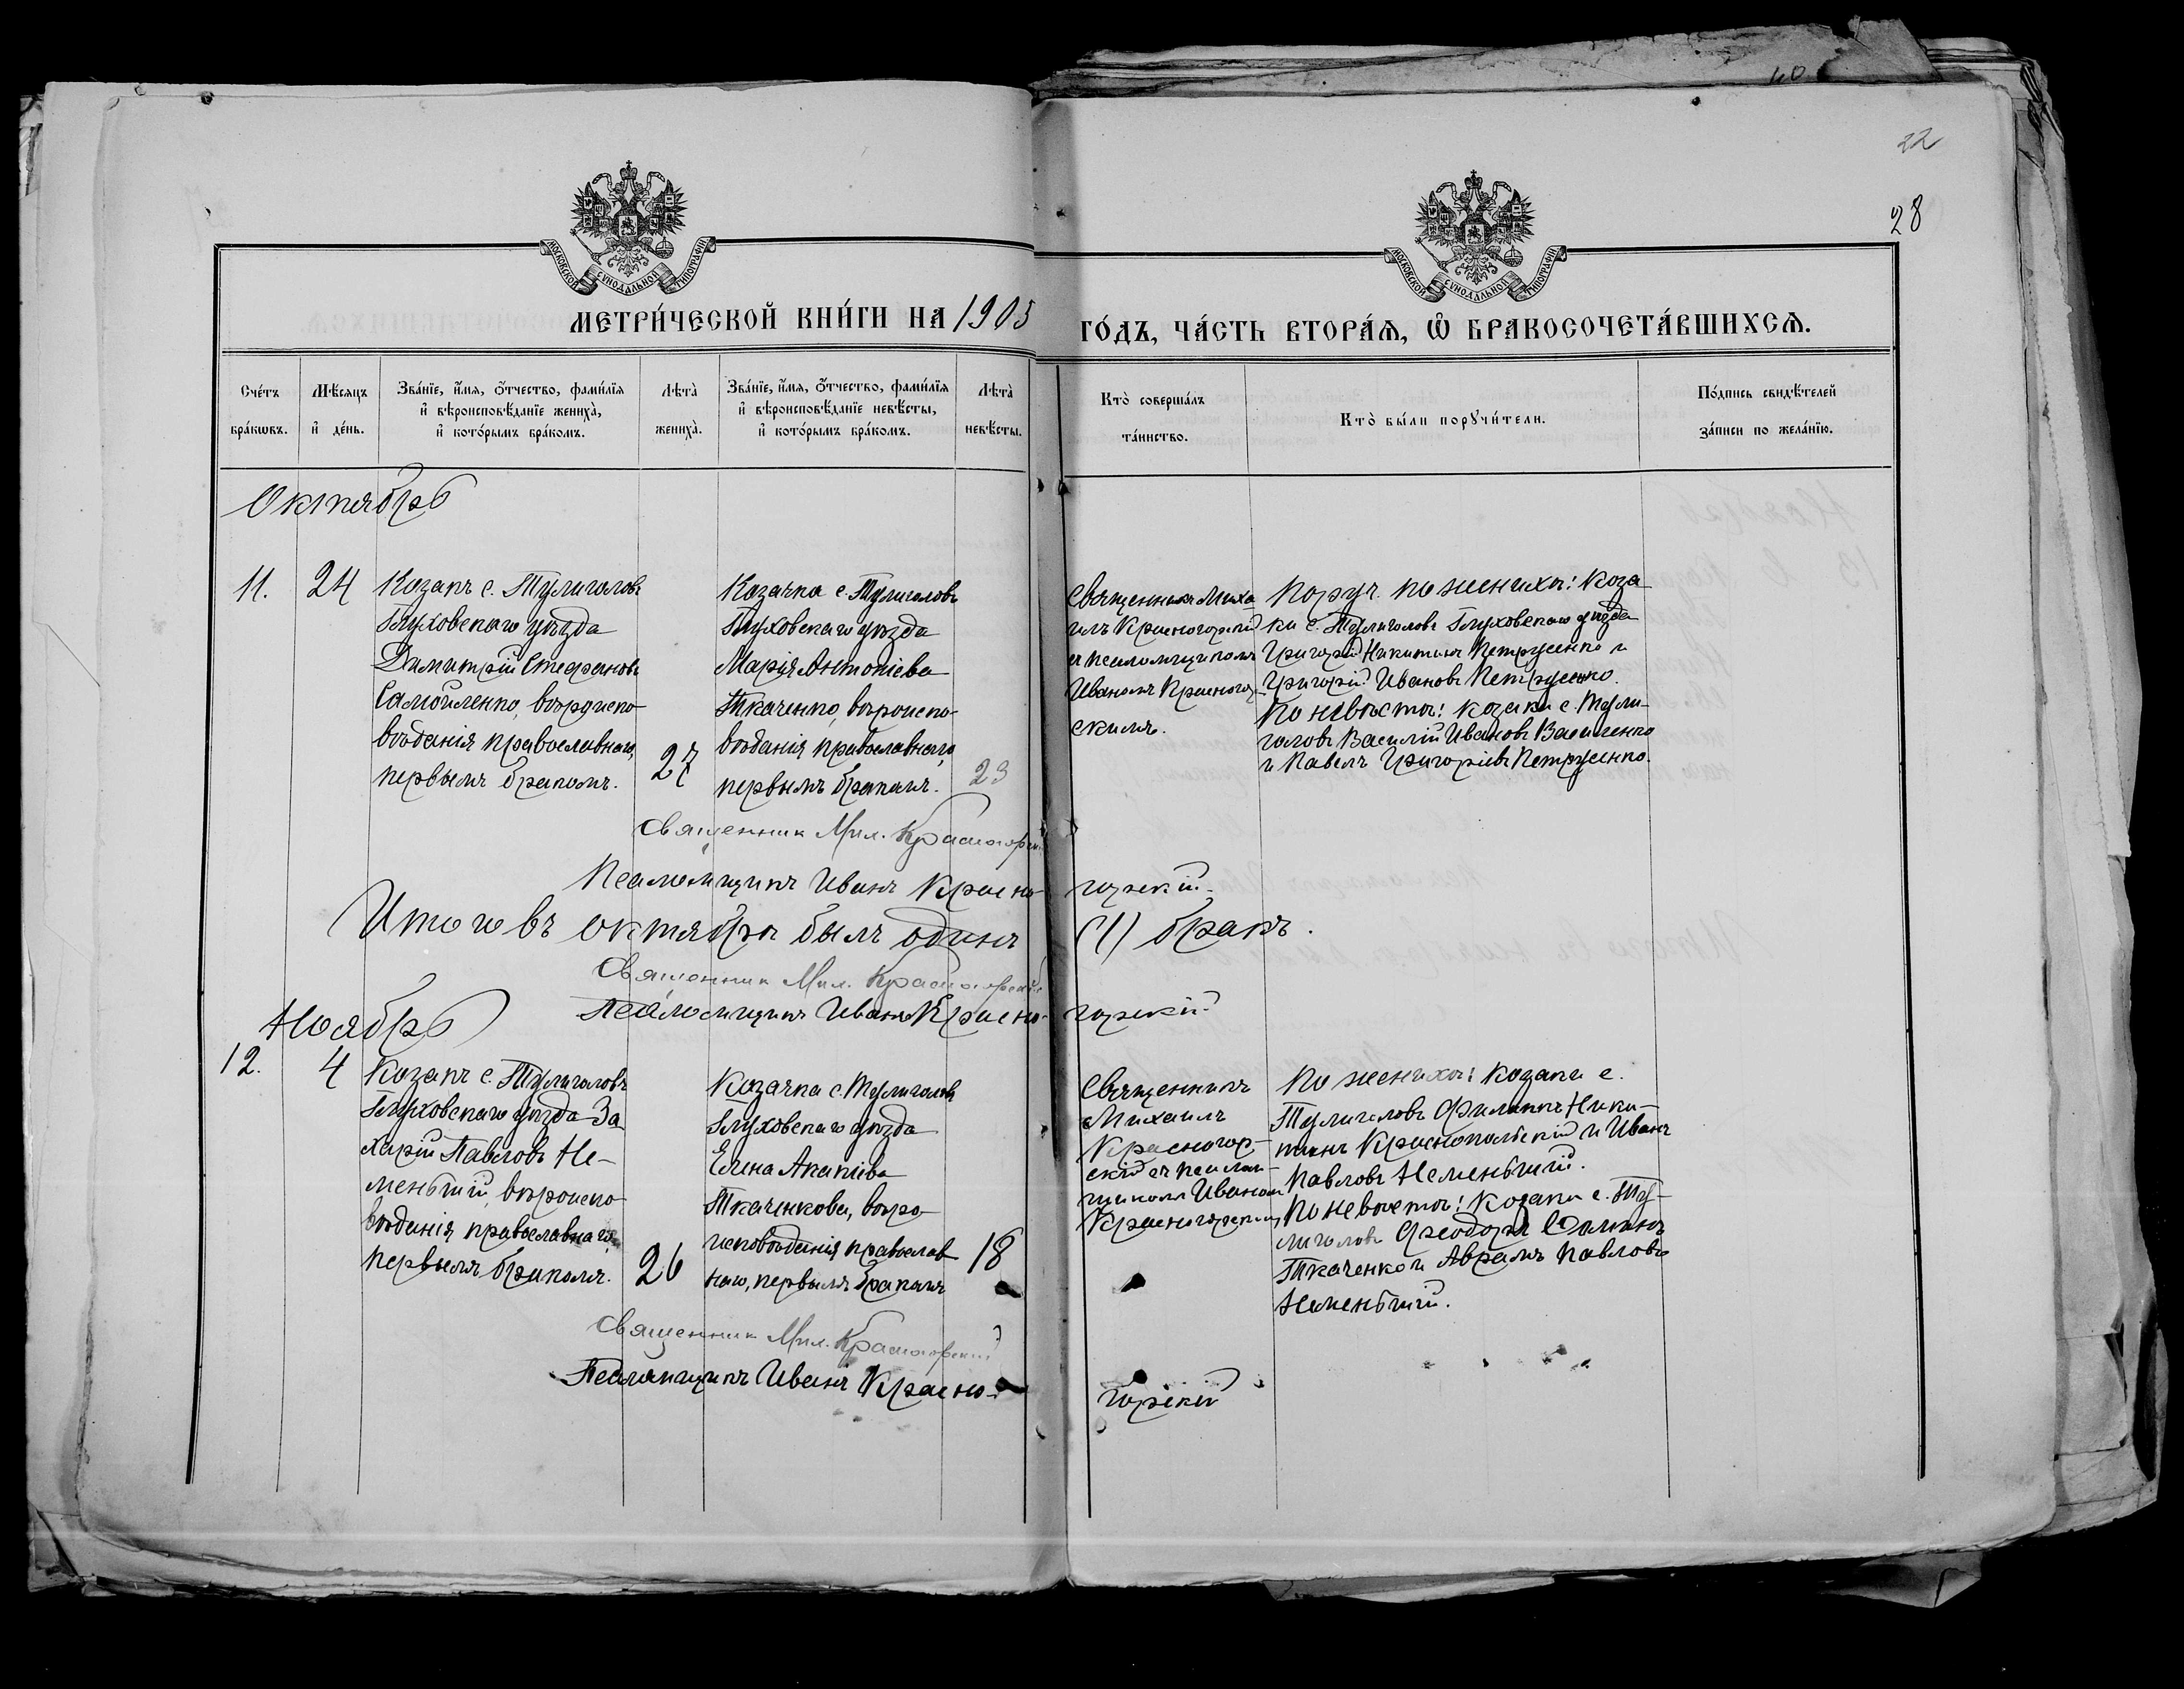 22
28
МОСКОВСКОЙ СѴНОДАЛЬНОЙ ТИПОГРАФІИ
МОСКОВСКОЙ СѴНОДАЛЬНОЙ ТИПОГРАФІИ
МЕТРИ́ЧЕСКОЙ КНИ́ГИ НА 1905 ГО́ДЪ, ЧА́СТЬ ВТОРА́Ѧ, Ѽ БРАКОСОЧЕТА́ВШИХСѦ.
Сче́тъ бра́кѡвъ.
Мѣ́сяцъ и҆ де́нь.
Зва́нїе, и҆́мя, ѻ҆́тчество, фами́лїя
и҆ вѣроисповѣ́данїе жениха̀,
и҆ кото́рымъ бра́комъ.
Лѣта̀ жениха̀.
Зва́нїе, и҆́мя, ѻ҆́тчество, фами́лїя
и҆ вѣроисповѣ́данїе невѣ́сты,
и҆ кото́рымъ бра́комъ.
Лѣта̀ невѣ́сты.
Кто̀ соверша́лъ та́инство.
Кто̀ бы́ли порꙋчи́тели.
По́дпись свидѣ́телей за́писи по жела́нїю.
Октябрь
11.
24
Козакъ с. Тулиголовъ
Глуховскаго уѣзда
Димитрій Стефановъ
Самойленко, вѣроиспо-
вѣданія православнаго,
первымъ бракомъ.
27
Козачка с. Тулиголовъ
Глуховскаго уѣзда
Марія Антоніева
Ткаченко, вѣроиспо-
вѣданія православнаго,
первымъ бракомъ.
23
Священникъ Миха-
илъ Красногорскій
съ псаломщикомъ
Иваномъ Красногор-
скимъ.
Поруч. по женихѣ: Коза-
ки с. Тулиголовъ Глуховскаго уѣзда
Григорій Никитинъ Петрусенко и
Григорій Ивановъ Петрусенко.
По невѣстѣ: козаки с. Тули-
головъ Василій Ивановъ Василенко
и Павелъ Григоріевъ Петрусенко.
Священник Мих. Красногорскій
Псаломщикъ Иванъ Красно- горскій.
Итого въ октябрѣ былъ одинъ (1) бракъ.
Священник Мих. Красногорскій
Псаломщикъ Иванъ Красно- горскій
Ноябрь
12.
4
Козакъ с. Тулиголовъ
Глуховскаго уѣзда За-
харій Павловъ Не-
меньшій, вѣроиспо-
вѣданія православнаго,
первымъ бракомъ.
26
Козачка с. Тулиголовъ
Глуховскаго уѣзда
Елена Акакіева
Ткаченкова, вѣро-
исповѣданія православ-
наго, первымъ бракомъ
18
Священникъ
Михаилъ
Красногор-
скій съ псалом-
щикомъ Иваномъ
Красногорскимъ
По женихѣ: Козаки с.
Тулиголовъ Филиппъ Ники-
тинъ Краснопольскій и Иванъ
Павловъ Неменьшій.
По невѣстѣ: Козаки с. Ту-
лиголовъ Ѳеодоръ
Ткаченко и Аврамъ Павловъ
Неменьшій.
Священник Мих. Красногорскій
Псаломщикъ Иванъ Красно- горскій